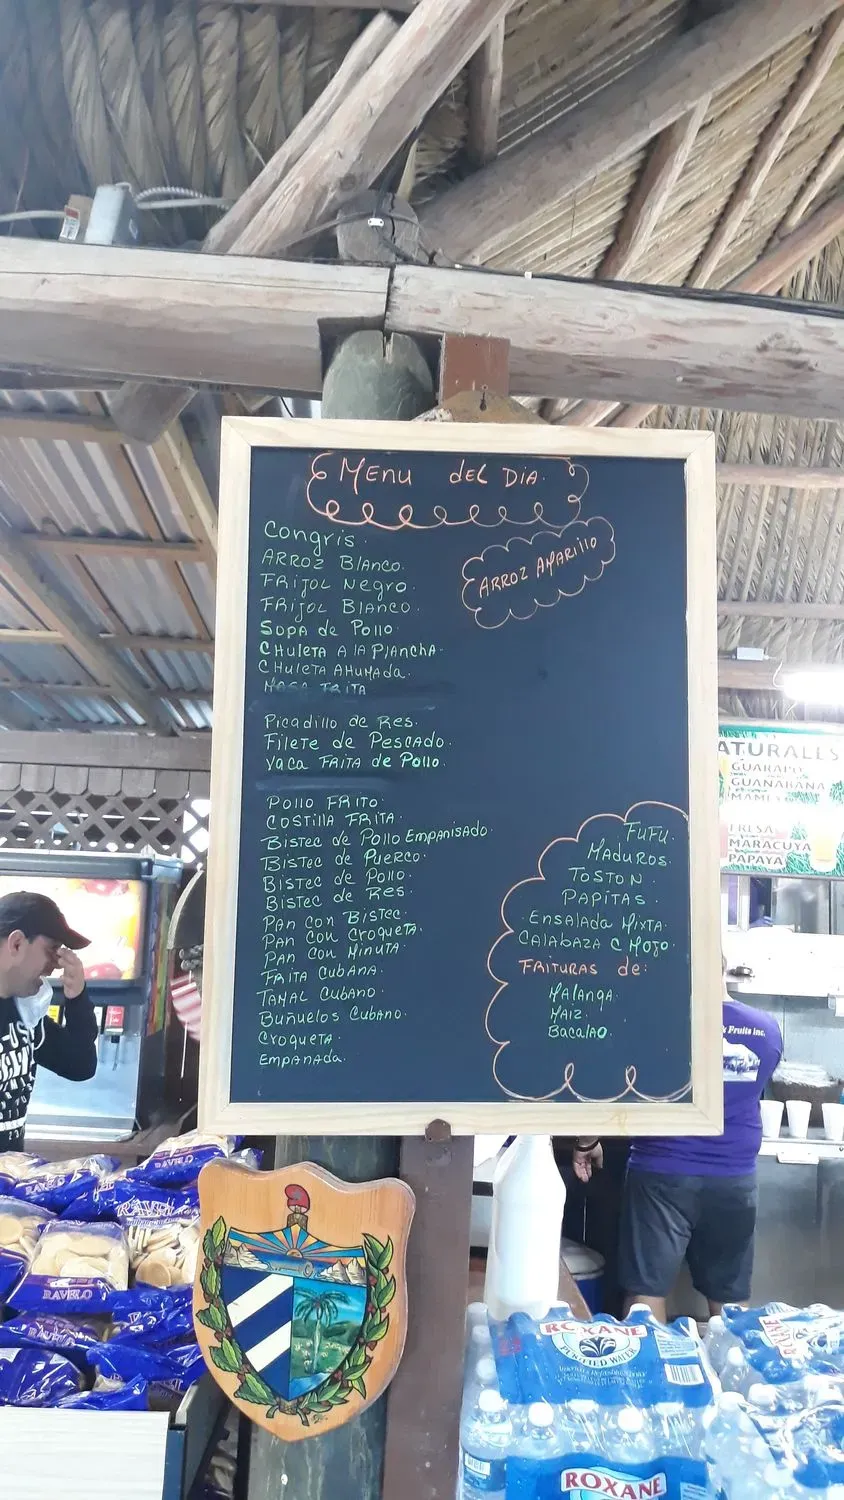 Menu del Dia.
Congris.
Arroz Blanco.
Arroz Amarillo
Frijol Negro.
Frijol Blanco.
Sopa de Pollo
Chuleta A la Plancha.
Chuleta Ahumada.
Frita
Picadillo de Res.
Filete de Pescado.
Vaca Frita de Pollo.
Pollo Frito.
Costilla Frita.
Bistec de Pollo Empanisado.
Bistec de Puerco.
Bistec de Pollo.
Bistec de Res.
Pan Con Bistec.
Pan Con Croqueta.
Pan Con Minuta.
Frita Cubana.
Tamal Cubano.
Buñuelos Cubano.
Croqueta.
Empanada.
Fufu.
Maduros.
Toston.
Papitas.
Ensalada Mixta.
Calabaza C Mojo.
Frituras de:
Malanga.
Maiz.
Bacalao.
ATURALES
GUARAPO
GUANABANA
MAME
FRESA
MARACUYA
PAPAYA
Fruits Inc.
RAVELO
RAVELO
RAVELO
ROXANE
PURIFIED WATER
ROXANE